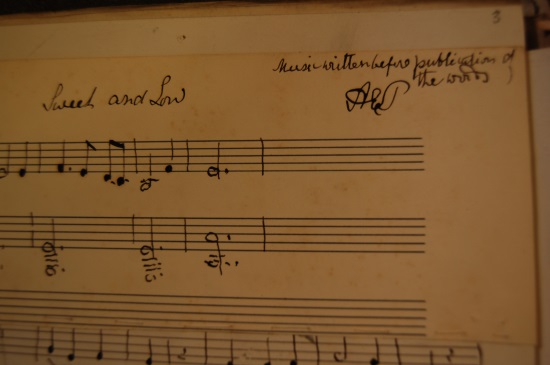 3
Music written before publication of
the words
Sweet and Low